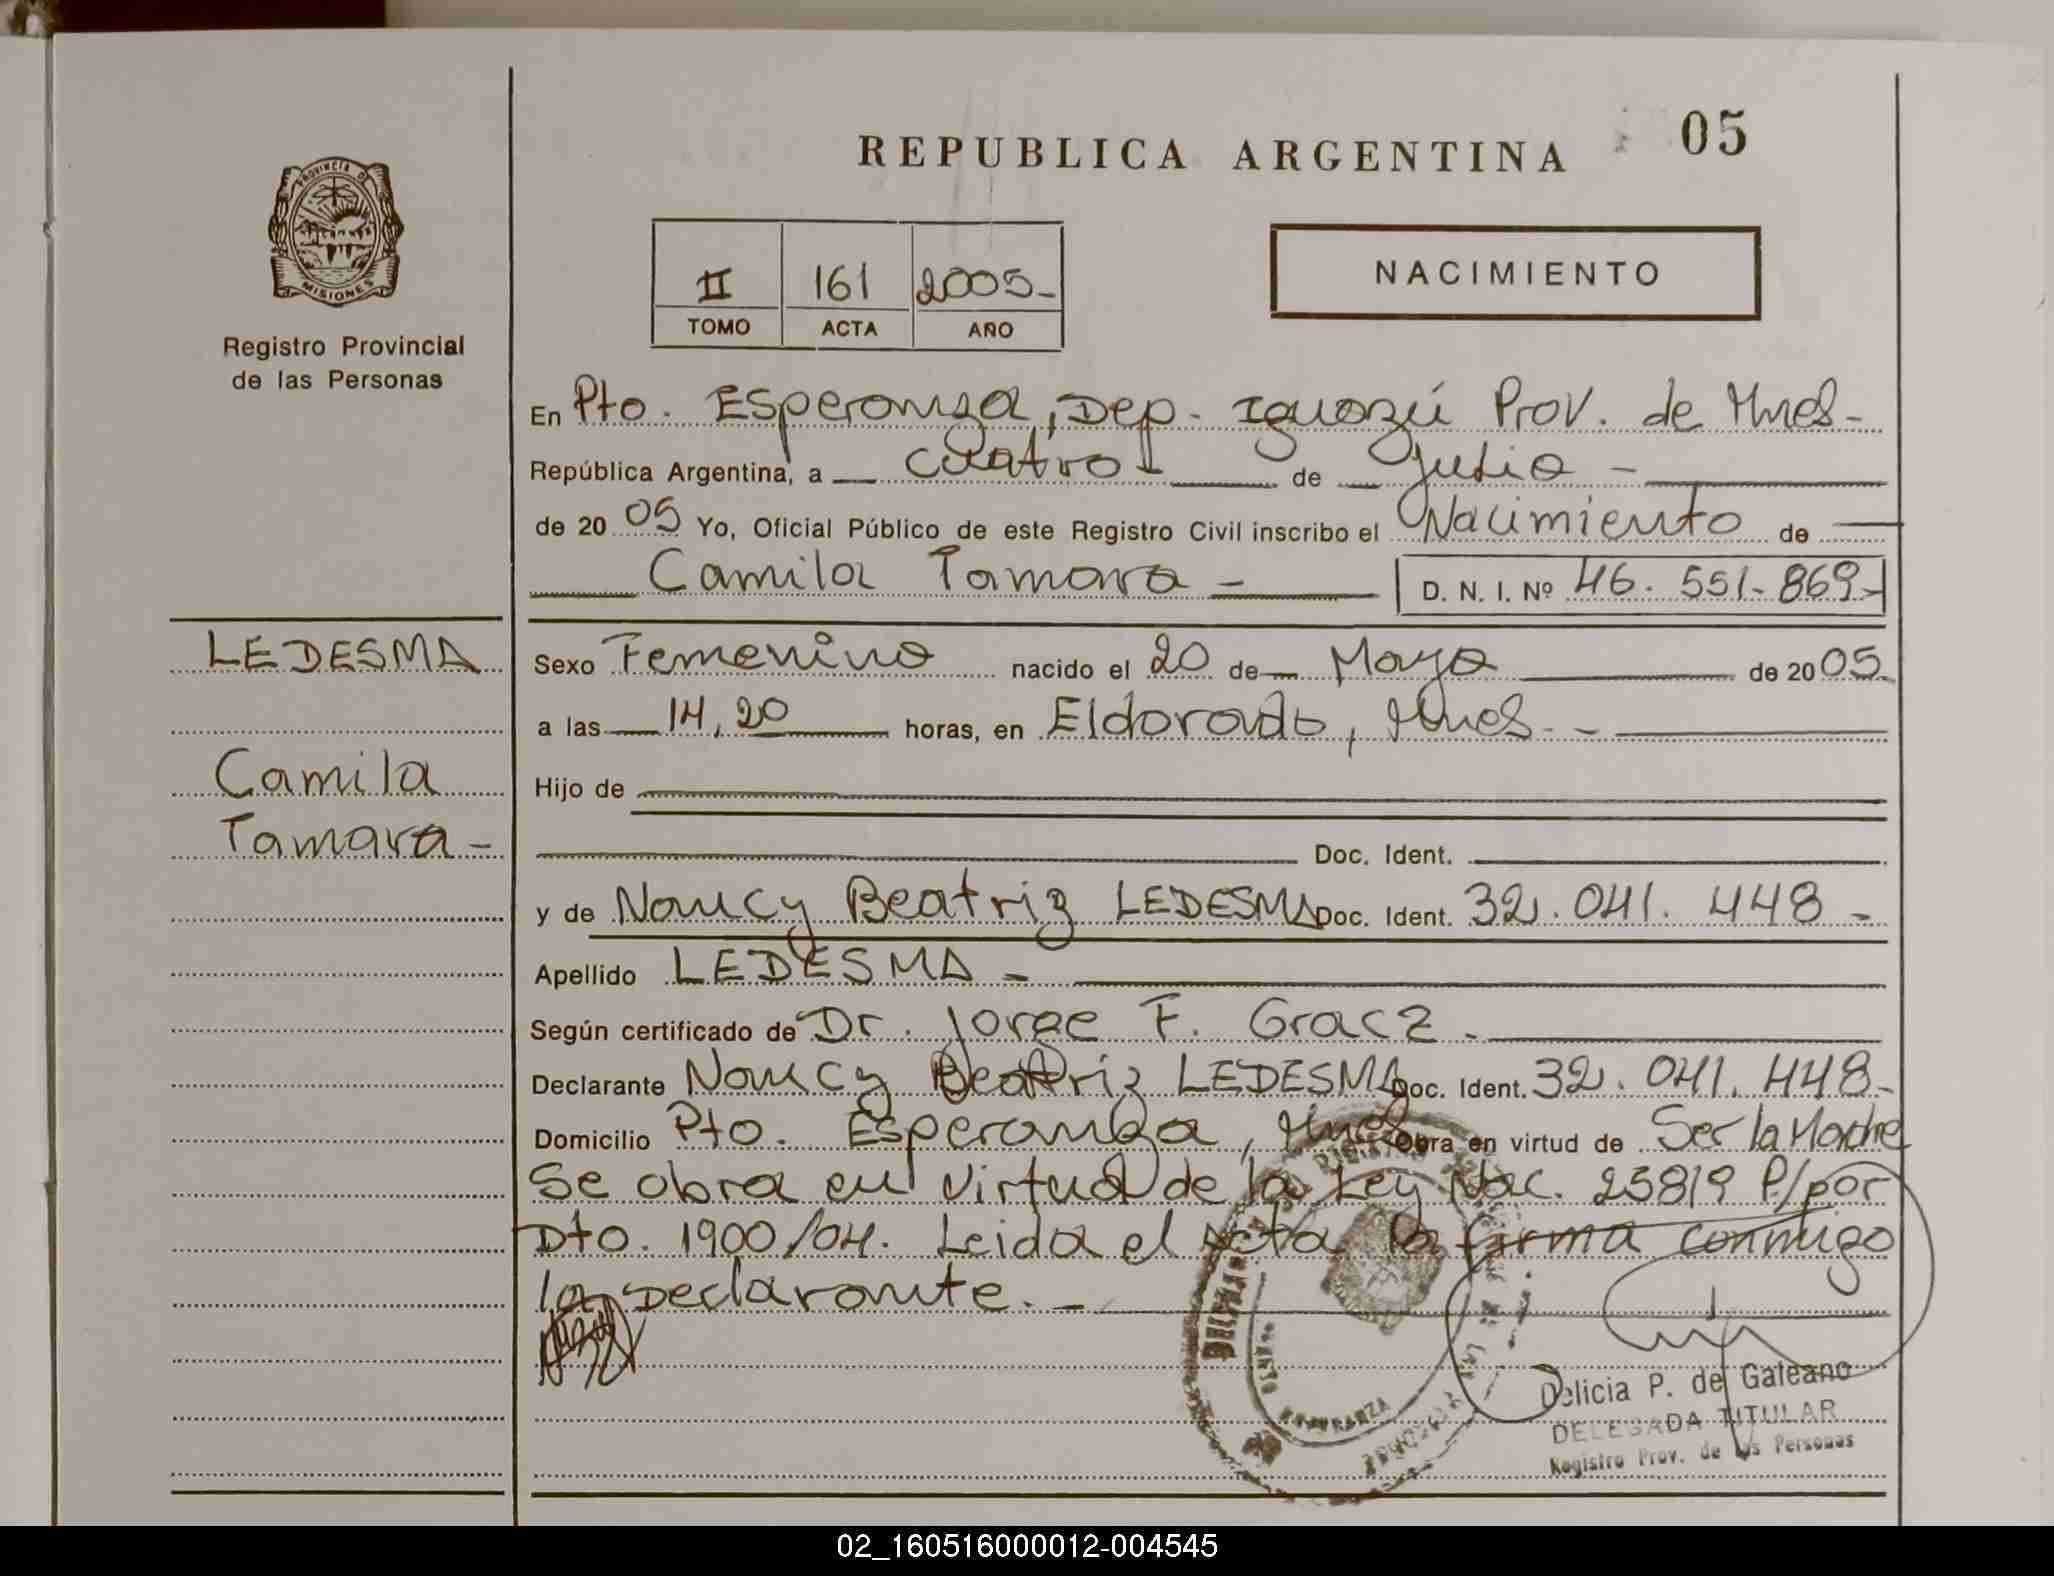 REPUBLICA ARGENTINA
05
PROVINCIA DE
MISIONES
Registro Provincial
de las Personas
II 161 2005-
TOMO ACTA AÑO
NACIMIENTO
En Pto. Esperanza, Dep. Iguazú Prov. de Mnes-
República Argentina, a cuatro de Julio -
de 2005 Yo, Oficial Público de este Registro Civil inscribo el Nacimiento de
Camila Tamara - D. N. I. Nº 46. 551. 869-
LEDESMA
Camila
Tamara -
Sexo Femenino nacido el 20 de Mayo de 2005.
a las 14,20 horas, en Eldorado, Mnes. -
Hijo de
Doc. Ident.
y de Nancy Beatriz LEDESMA Doc. Ident. 32.041.448 -
Apellido LEDESMA -
Según certificado de Dr. Jorge F. Gracz -
Declarante Nancy Beatriz LEDESMA Doc. Ident. 32.041.448-
Domicilio Pto. Esperanza, Mnes Obra en virtud de Ser la Madre
Se obra en virtud de la Ley Nac. 25819 P/por
Dto. 1900/04. Leida el Acta la firma conmigo
la Declarante. -
ESPERANZA
Delicia P. de Galeano
DELEGADA TITULAR
Registro Prov. de las Personas
02_160516000012-004545